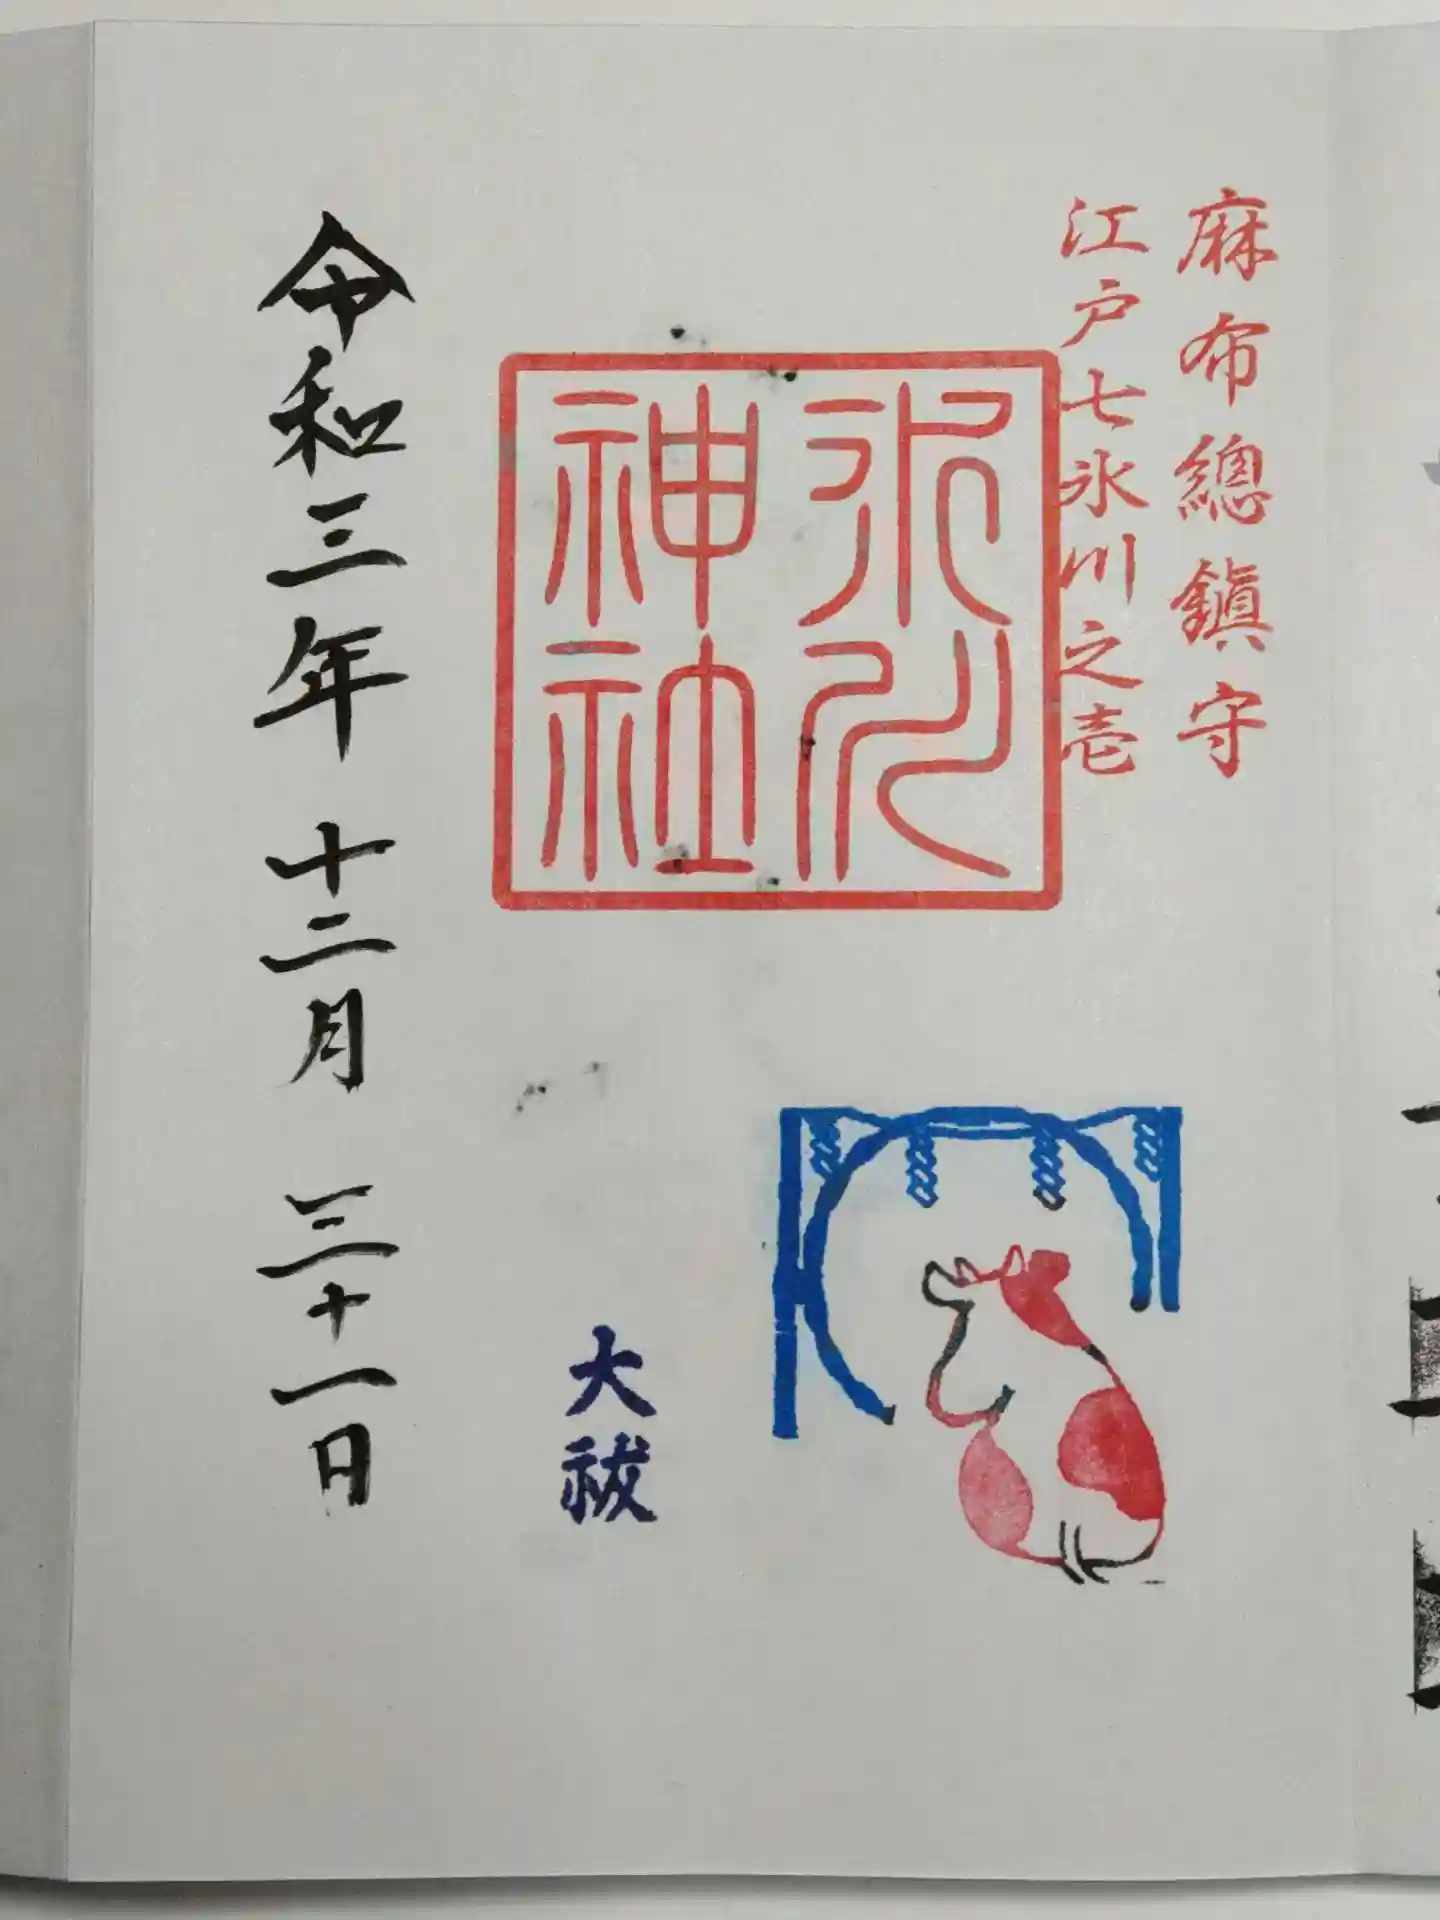 麻布總鎮守
江戸七氷川之壱
氷川
神社
大祓
令和三年十二月三十一日